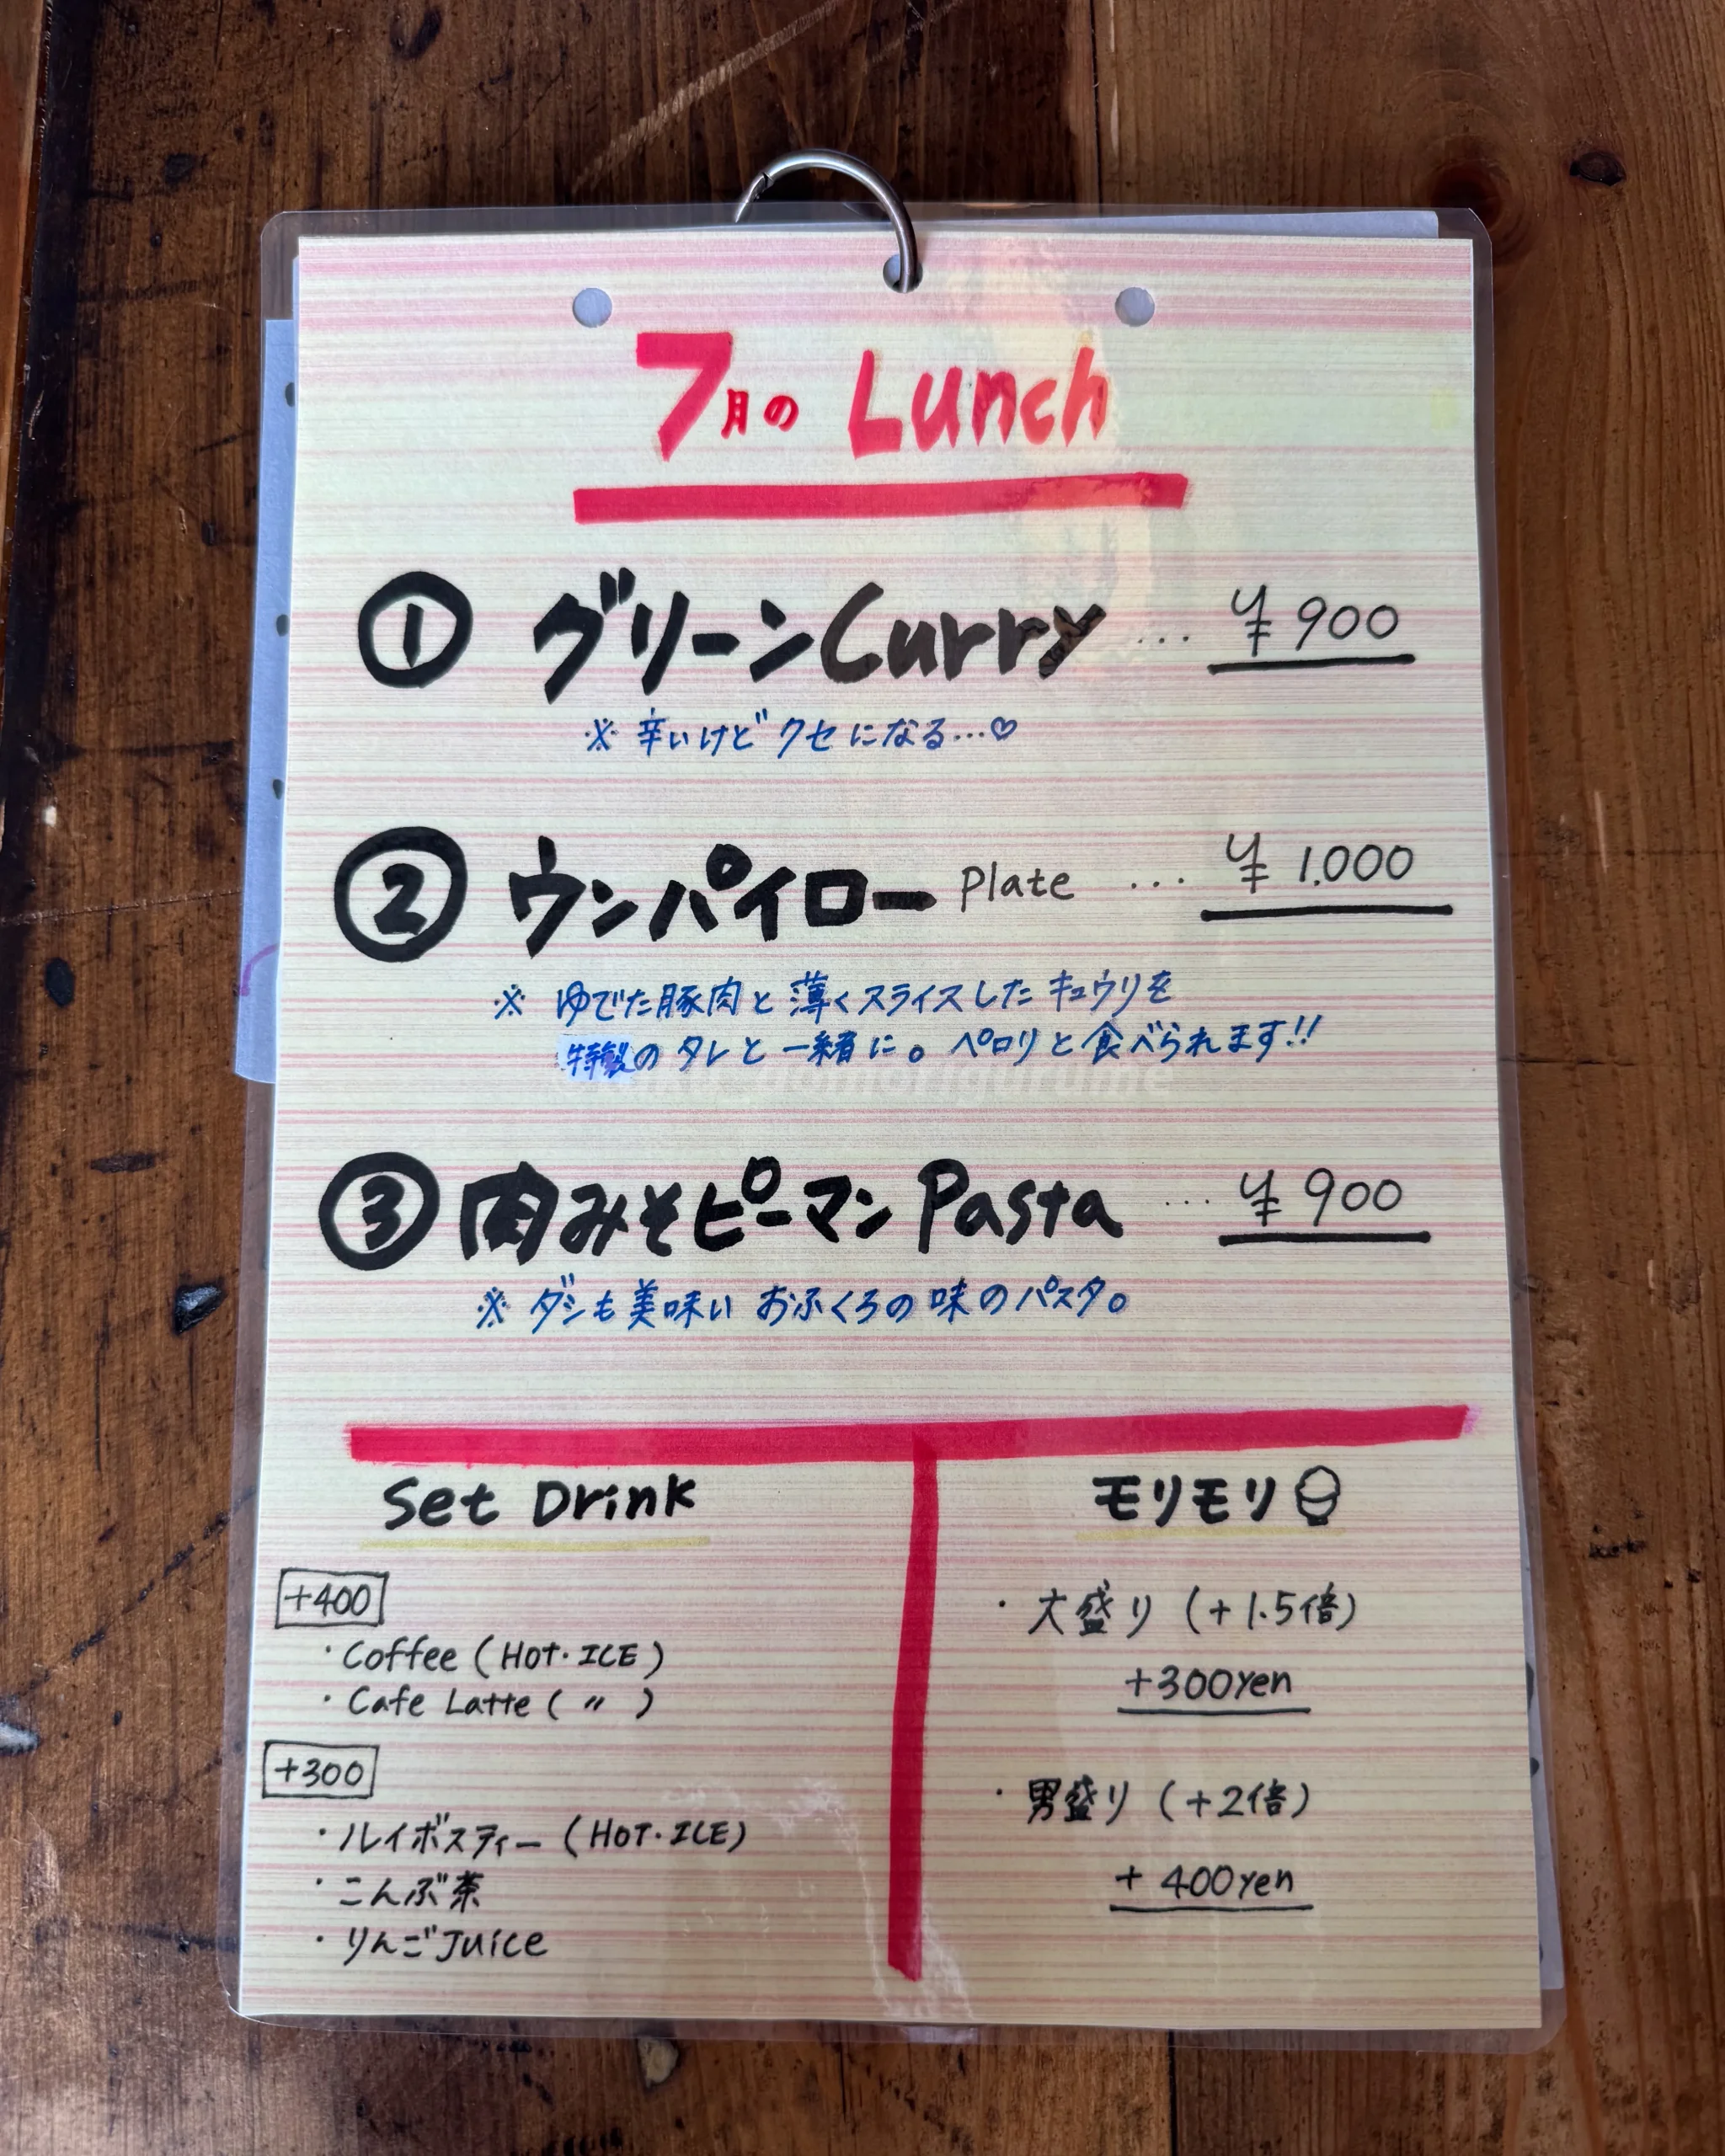 7月のLunch
① グリーンCurry … ¥900
※ 辛いけどクセになる…♡
② ウンパイロー Plate … ¥1.000
※ ゆでた豚肉と薄くスライスしたキュウリを
特製のタレと一緒に。ペロリと食べられます!!
③ 肉みそピーマン Pasta … ¥900
※ ダシも美味い おふくろの味のパスタ。
Set Drink
+400
・Coffee (HOT・ICE)
・Cafe Latte ( 〃 )
+300
・ルイボスティー (HOT・ICE)
・こんぶ茶
・りんごJuice
モリモリ
・大盛り (+1.5倍)
+300yen
・男盛り (+2倍)
+400yen